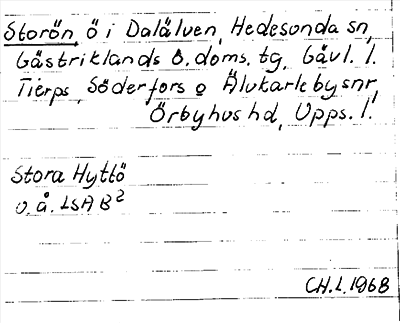 Storön, ö i Dalälven, Hedesunda sn,
Gästriklands ö. doms. tg, Gävl. l.
Tierps, Söderfors o Älvkarleby snr,
Örbyhus hd, Upps. l.
Stora Hyttö
v. å. LSA B²
CH.L.1968